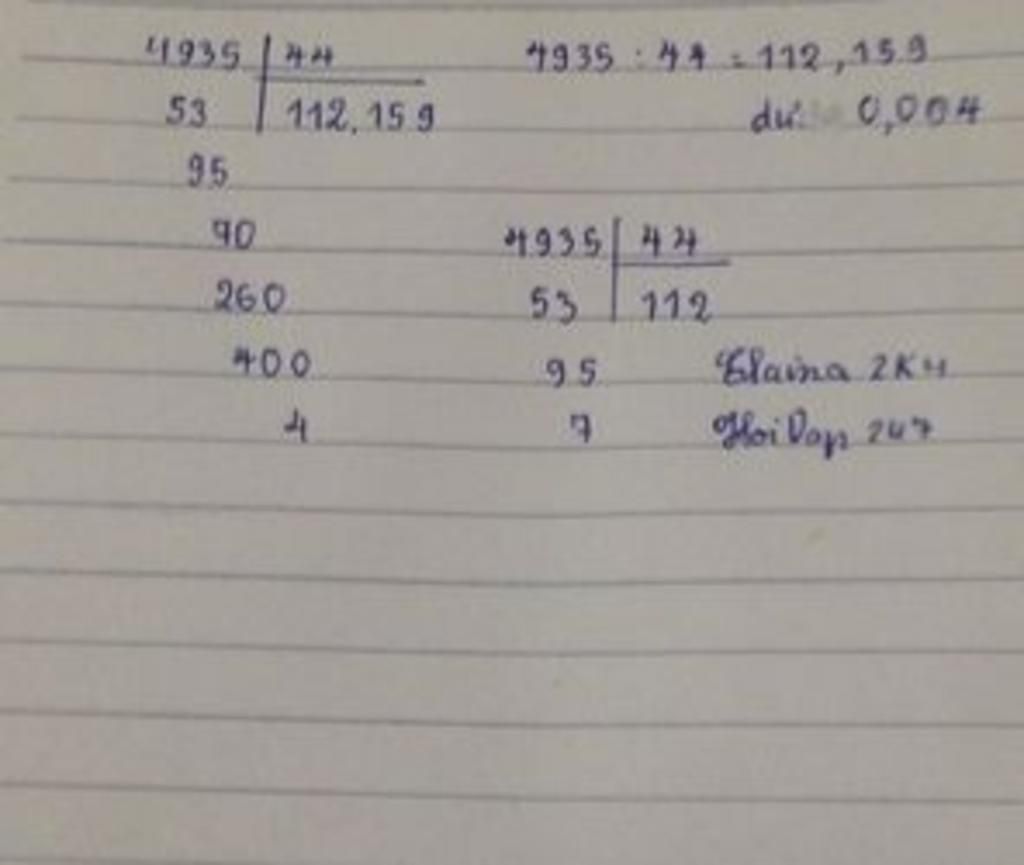 4935 44
53 112,159
95
70
260
400
4
4935 : 44 = 112,159
dư: 0,004
4935 44
53 112
95
7
Elaina 2K4
HoiDap 247